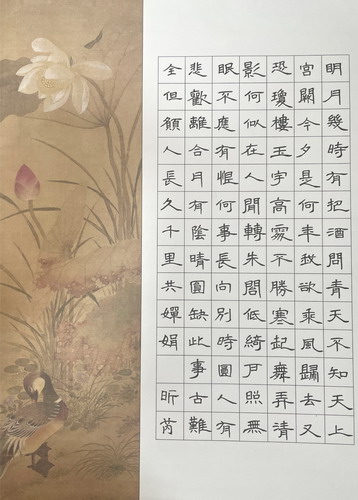 明月幾時有把酒問青天不知天上
宮闕今夕是何年我欲乘風歸去又
恐瓊樓玉宇高處不勝寒起舞弄清
影何似在人間轉朱閣低綺戶照無
眠不應有恨何事長向別時圓人有
悲歡離合月有陰晴圓缺此事古難
全但願人長久千里共嬋娟 昕芮